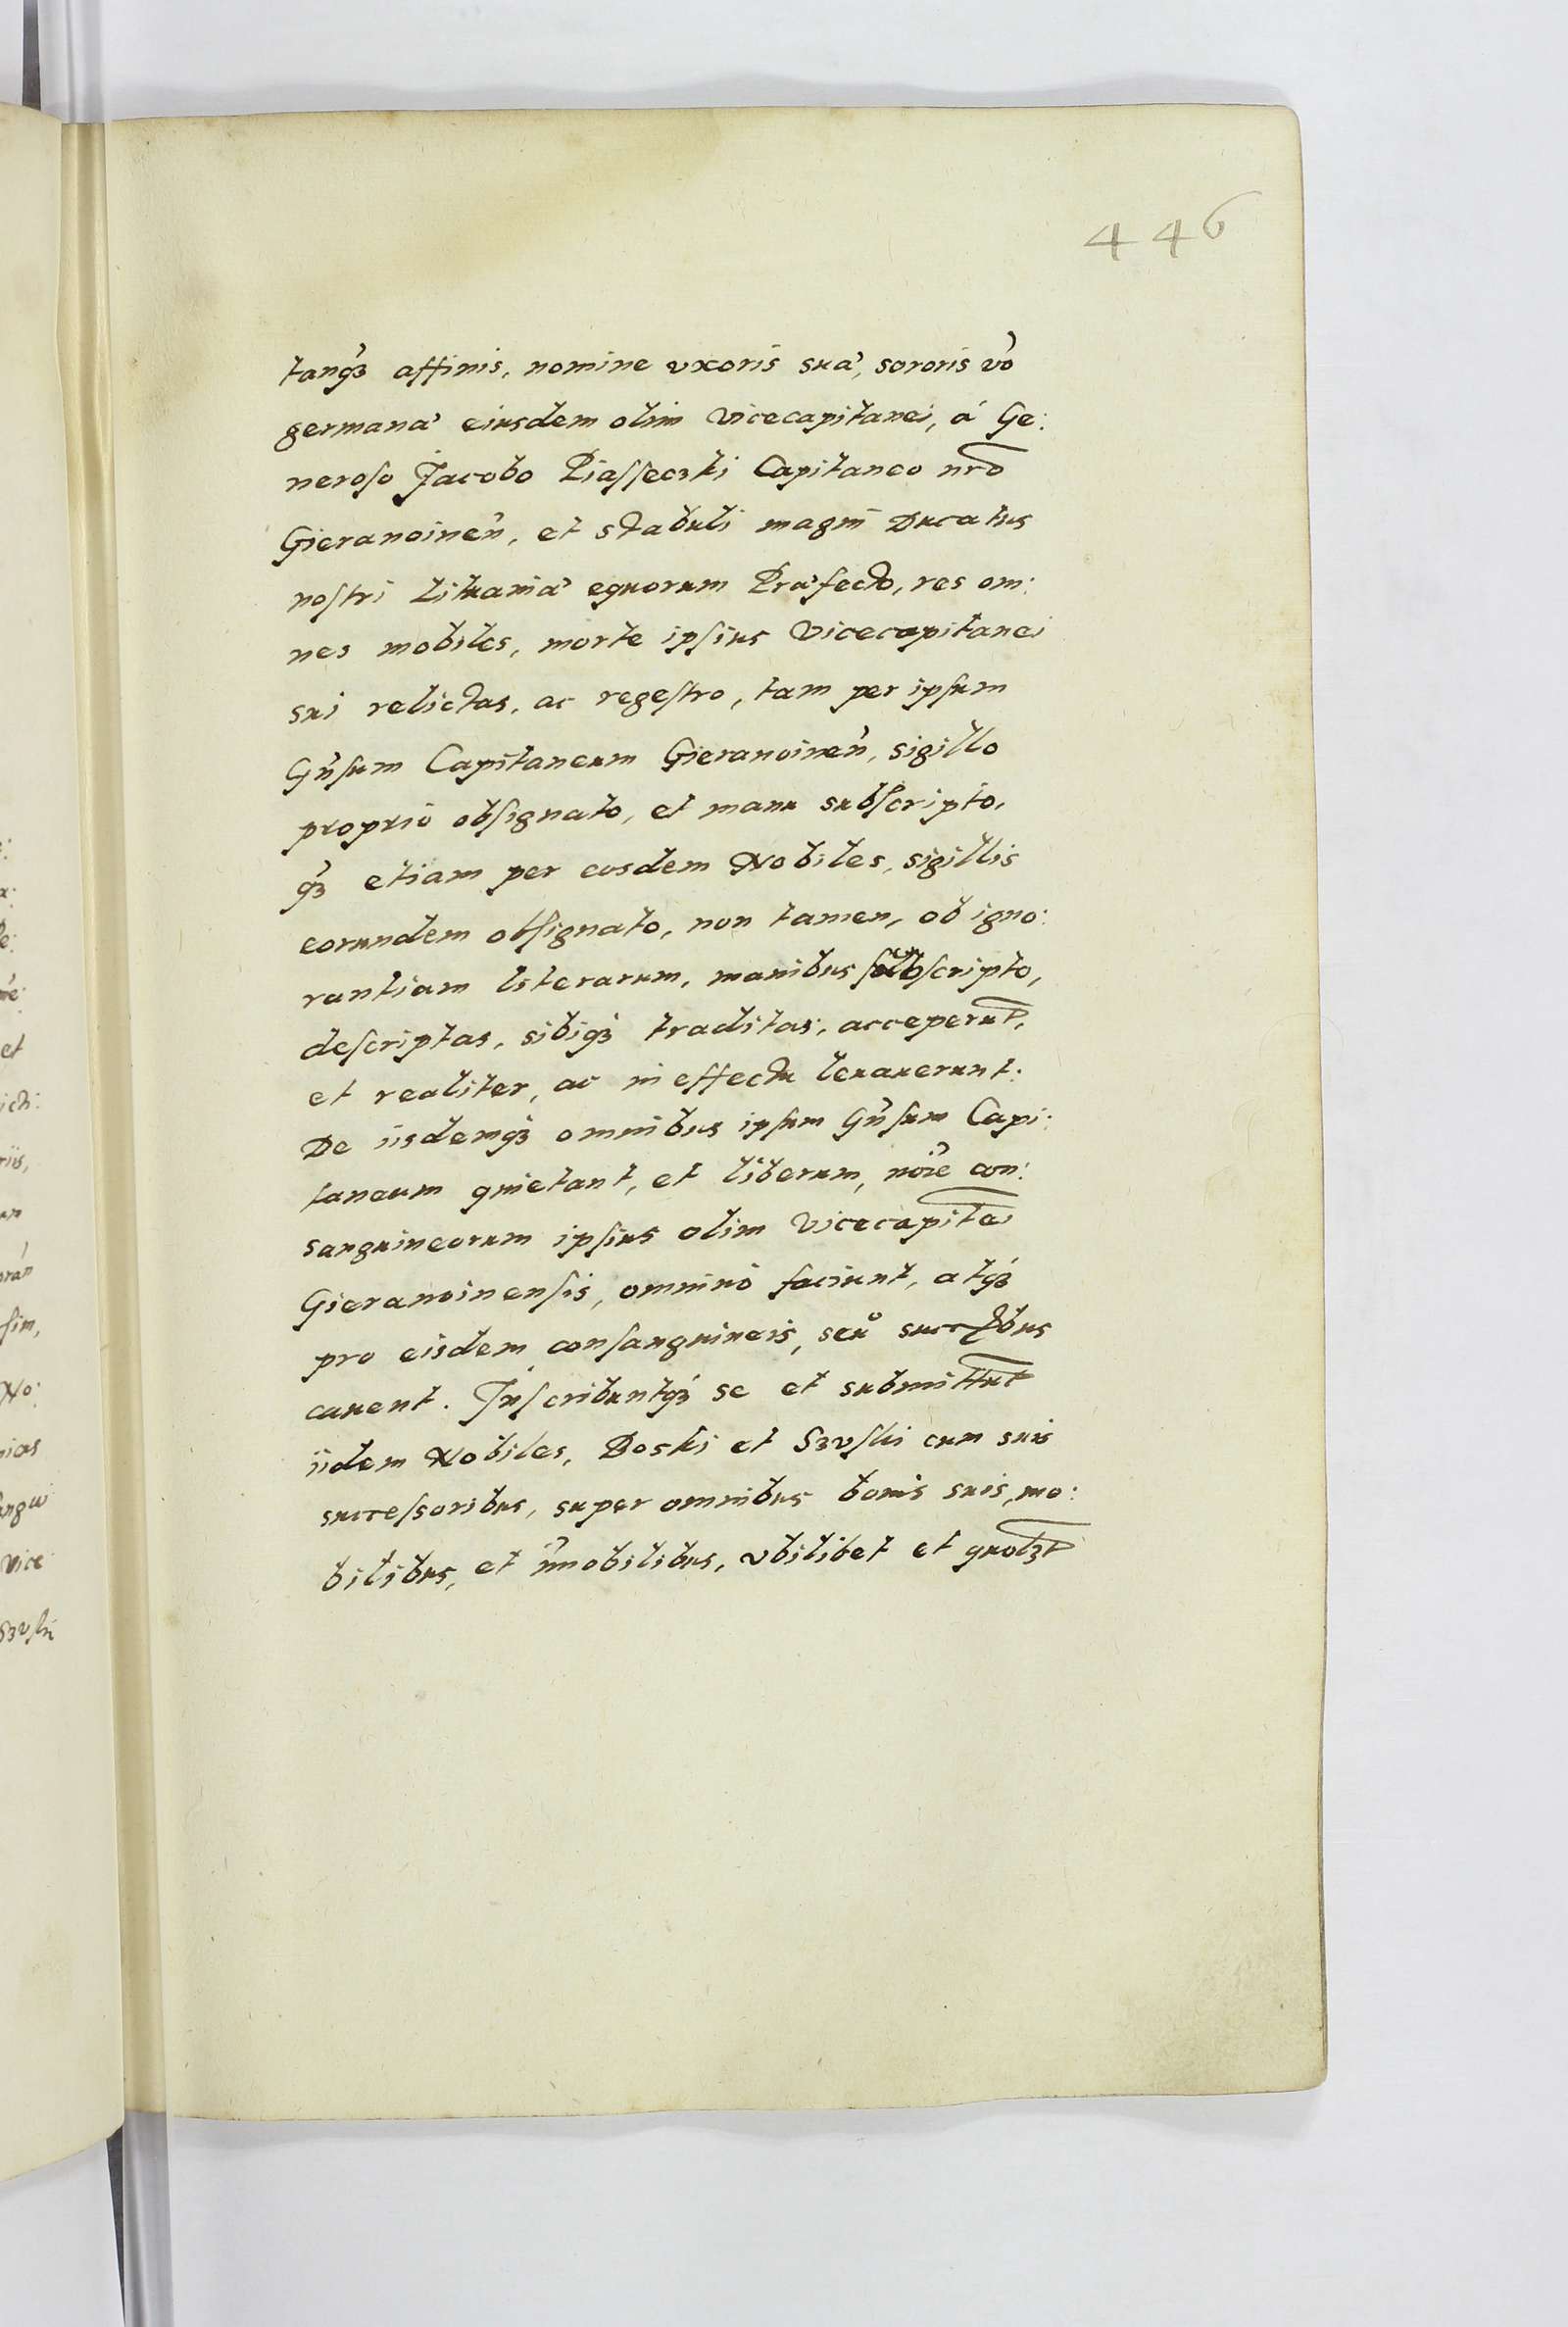 446
tanq̃ affinis, nomine vxoris suæ, sororis v̉o
germanæ eiusdem olim Vicecapitanei, á Ge:
neroſo Jacobo Piaſſeczki Capitaneo nr̃o
Gieranoineñ, et stabuli magni Ducatus
noſtri Lituaniæ equorum Præfecto, res om:
nes mobiles, morte ipſius Vicecapitanei
sui relictas, ac regeſtro, tam per ipſum
Gñſum Capitaneum Gieranoineñ, sigillo
proprio obſignato, et manu subſcripto,
q̃ etiam per eosdem Nobiles, sigillis
eorundem obſignato, non tamen, ob igno:
rantiam literarum, manibus ſubſcripto,
deſcriptas, sibiqꝫ traditas, acceperũt,
et realiter, ac in effectu leuauerunt.
De iisdemqꝫ omnibus ipſum Gñſum Capi:
taneum quietant, et liberum, nõie con:
sanguineorum ipſius olim Vicecapitẽi
Gieranoinenſis, omnino faciunt, atqꝫ
pro eisdem conſanguineis, seu
cauent. Inſcribuntqꝫ se et submittũt
iidem Nobiles, Boski et Szvſki cum suis
succeſsoribus, super omnibus bonis suis, mo:
bilibus, et im̃obilibus, vbilibet et